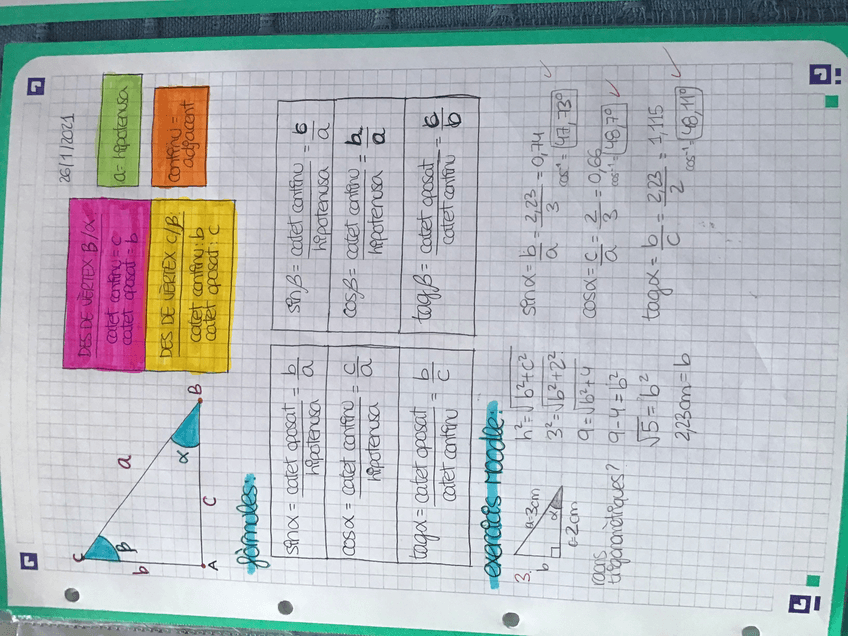 26/1/2021
C
β
b
a
α
B
A
c
DES DE VÈRTEX B/α
catet continu = c
catet oposat = b
a = hipotenusa
DES DE VÈRTEX C/β
catet continu: b
catet oposat: c
continu = adjacent
fórmules:
sinα = catet oposat / hipotenusa = b/a
sinβ = catet continu / hipotenusa = c/a
cosα = catet continu / hipotenusa = c/a
cosβ = catet continu / hipotenusa = b/a
tagα = catet oposat / catet continu = b/c
tagβ = catet oposat / catet continu = c/b
exercicis moodle:
3.
b
a=3cm
α
c=2cm
raons trigonomètriques?
h² = √b²+c²
3² = √b²+2²
9 = √b²+4
9-4 = b²
√5 = b²
2,23cm = b
sinα = b/a = 2,23/3 = 0,74
cos⁻¹ = 47,73º ✓
cosα = c/a = 2/3 = 0,66
cos⁻¹ = 48,7º ✓
tagα = b/c = 2,23/2 = 1,115
cos⁻¹ = 48,11º ✓